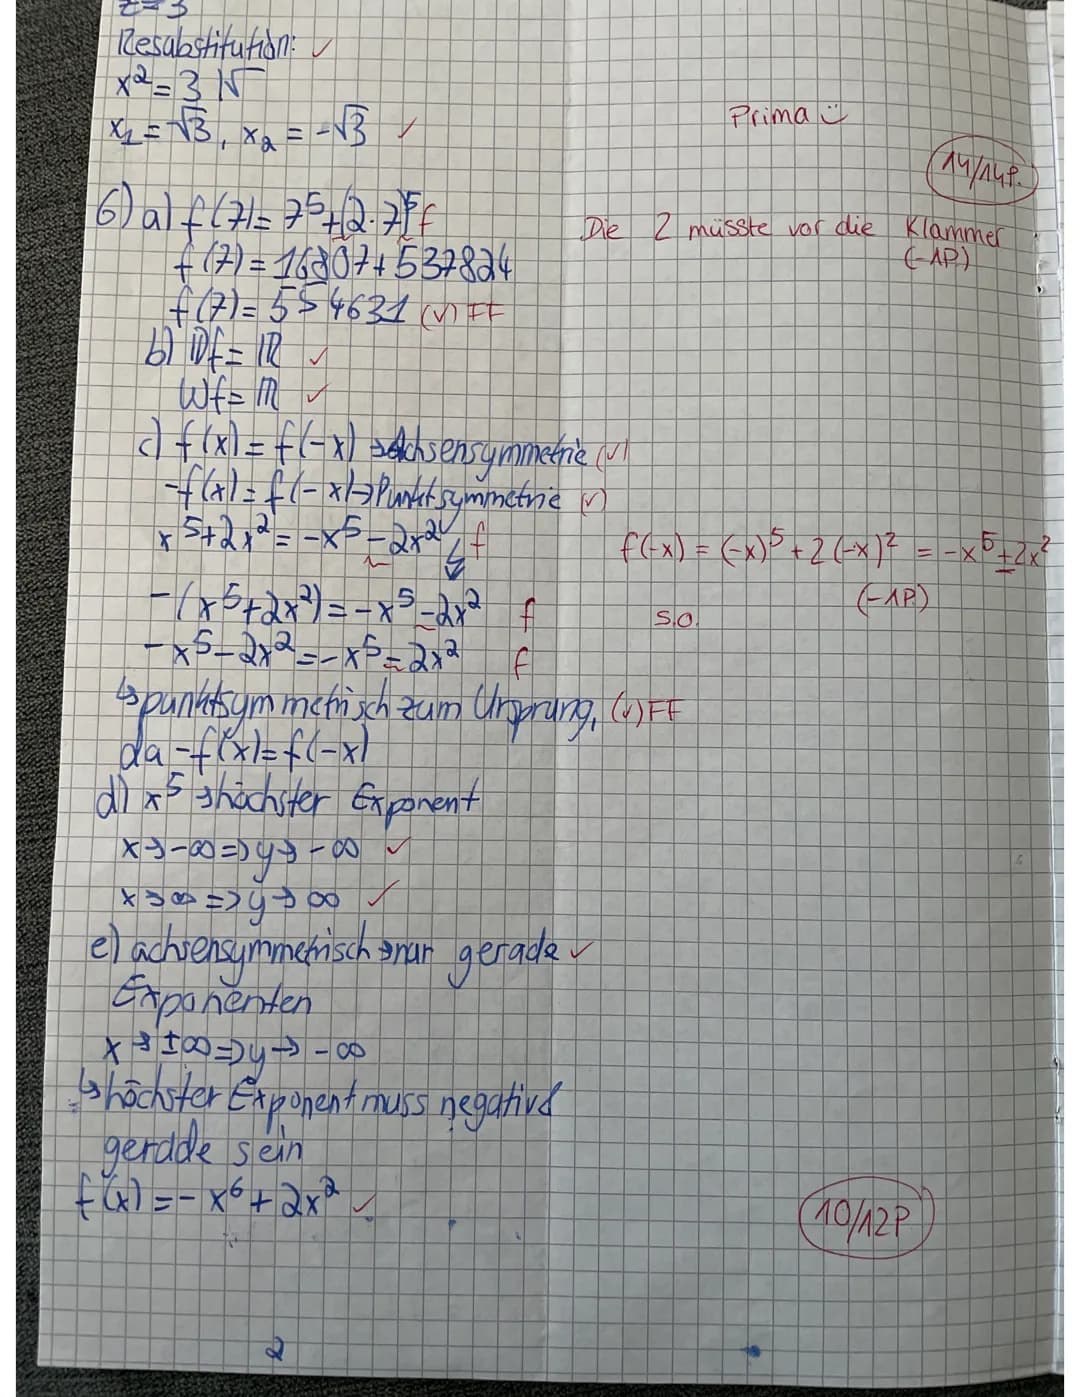 z = 3
Resubstitution: ✓
x² = 3 |√
x₁ = √3, x₂ = -√3 ✓
Prima
14/14P.
6) a) f(7) = 7⁵ + (2·7)⁵ f
Die 2 müsste vor die Klammer
(-1P)
f(7) = 16807 + 537824
f(7) = 554631 (✓) FF
b) Df = ℝ ✓
Wf = ℝ ✓
c) f(x) = f(-x) → Achsensymmetrie (✓)
-f(x) = f(-x) → Punktsymmetrie (✓)
x⁵ + 2x² = -x⁵ - 2x² ↯ f
f(-x) = (-x)⁵ + 2(-x)² = -x⁵ + 2x²
(-1P)
-(x⁵ + 2x²) = -x⁵ - 2x² f
s.o.
-x⁵ - 2x² = -x⁵ - 2x² f
↳ punktsymmetrisch zum Ursprung, (✓) FF
da -f(x) = f(-x)
d) x⁵ → höchster Exponent
x → -∞ => y → -∞ ✓
x → ∞ => y → ∞ ✓
e) achsensymmetrisch → nur gerade ✓
Exponenten
x → ±∞ => y → -∞
↳ höchster Exponent muss negativ &
gerade sein
f(x) = -x⁶ + 2x² ✓
10/12P
2